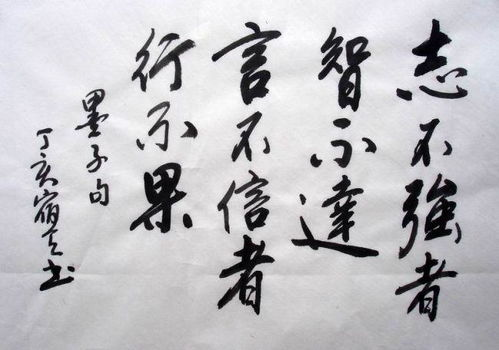 志不強者
智不達
言不信者
行不果
墨子句
丁亥宿立书